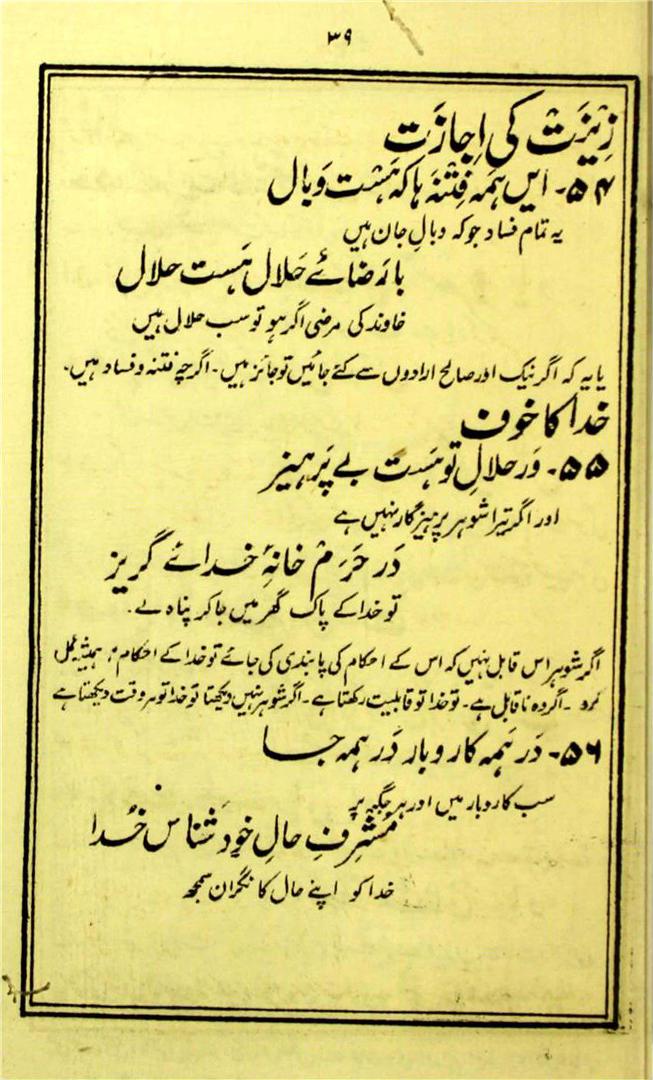 ۳۹
زِیْنَتْ کی اِجازَت
۵۴- ایں ہمَہ فِتْنہَ ہا کہ ہَسْت وَبال
یہ تمام فساد جو کہ وبالِ جان ہیں
بارَضائے حَلال ہَست حلال
خاوند کی مرضی اگر ہو تو سب حلال ہیں
یا یہ کہ اگر نیک اور صالح ارادوں سے کئے جائیں تو جائز ہیں۔ اگرچہ فتنہ و فساد ہیں۔
خدا کا خوف
۵۵- وَر حلالِ تو ہَست بے پَرہیز
اور اگر تیرا شوہر پرہیزگار نہیں ہے
دَر حَرَمْ خانۂِ خدائے گریز
تو خدا کے پاک گھر میں جا کر پناہ لے۔
اگر شوہر اس قابل نہیں کہ اس کے احکام کی پابندی کی جائے تو خدا کے احکام پر ہمیشہ عمل
کرو ۔ اگر وہ ناقابل ہے۔ تو خدا تو قابلیت رکھتا ہے۔ اگر شوہر نہیں دیکھتا تو خدا تو ہر وقت دیکھتا ہے
۵۶- دَر ہَمہ کاروبار دَر ہمہ جا
سب کاروبار میں اور ہر جگہ پر
مُشْرِفِ حالِ خود شناس خُدا
خدا کو اپنے حال کا نگران سمجھ